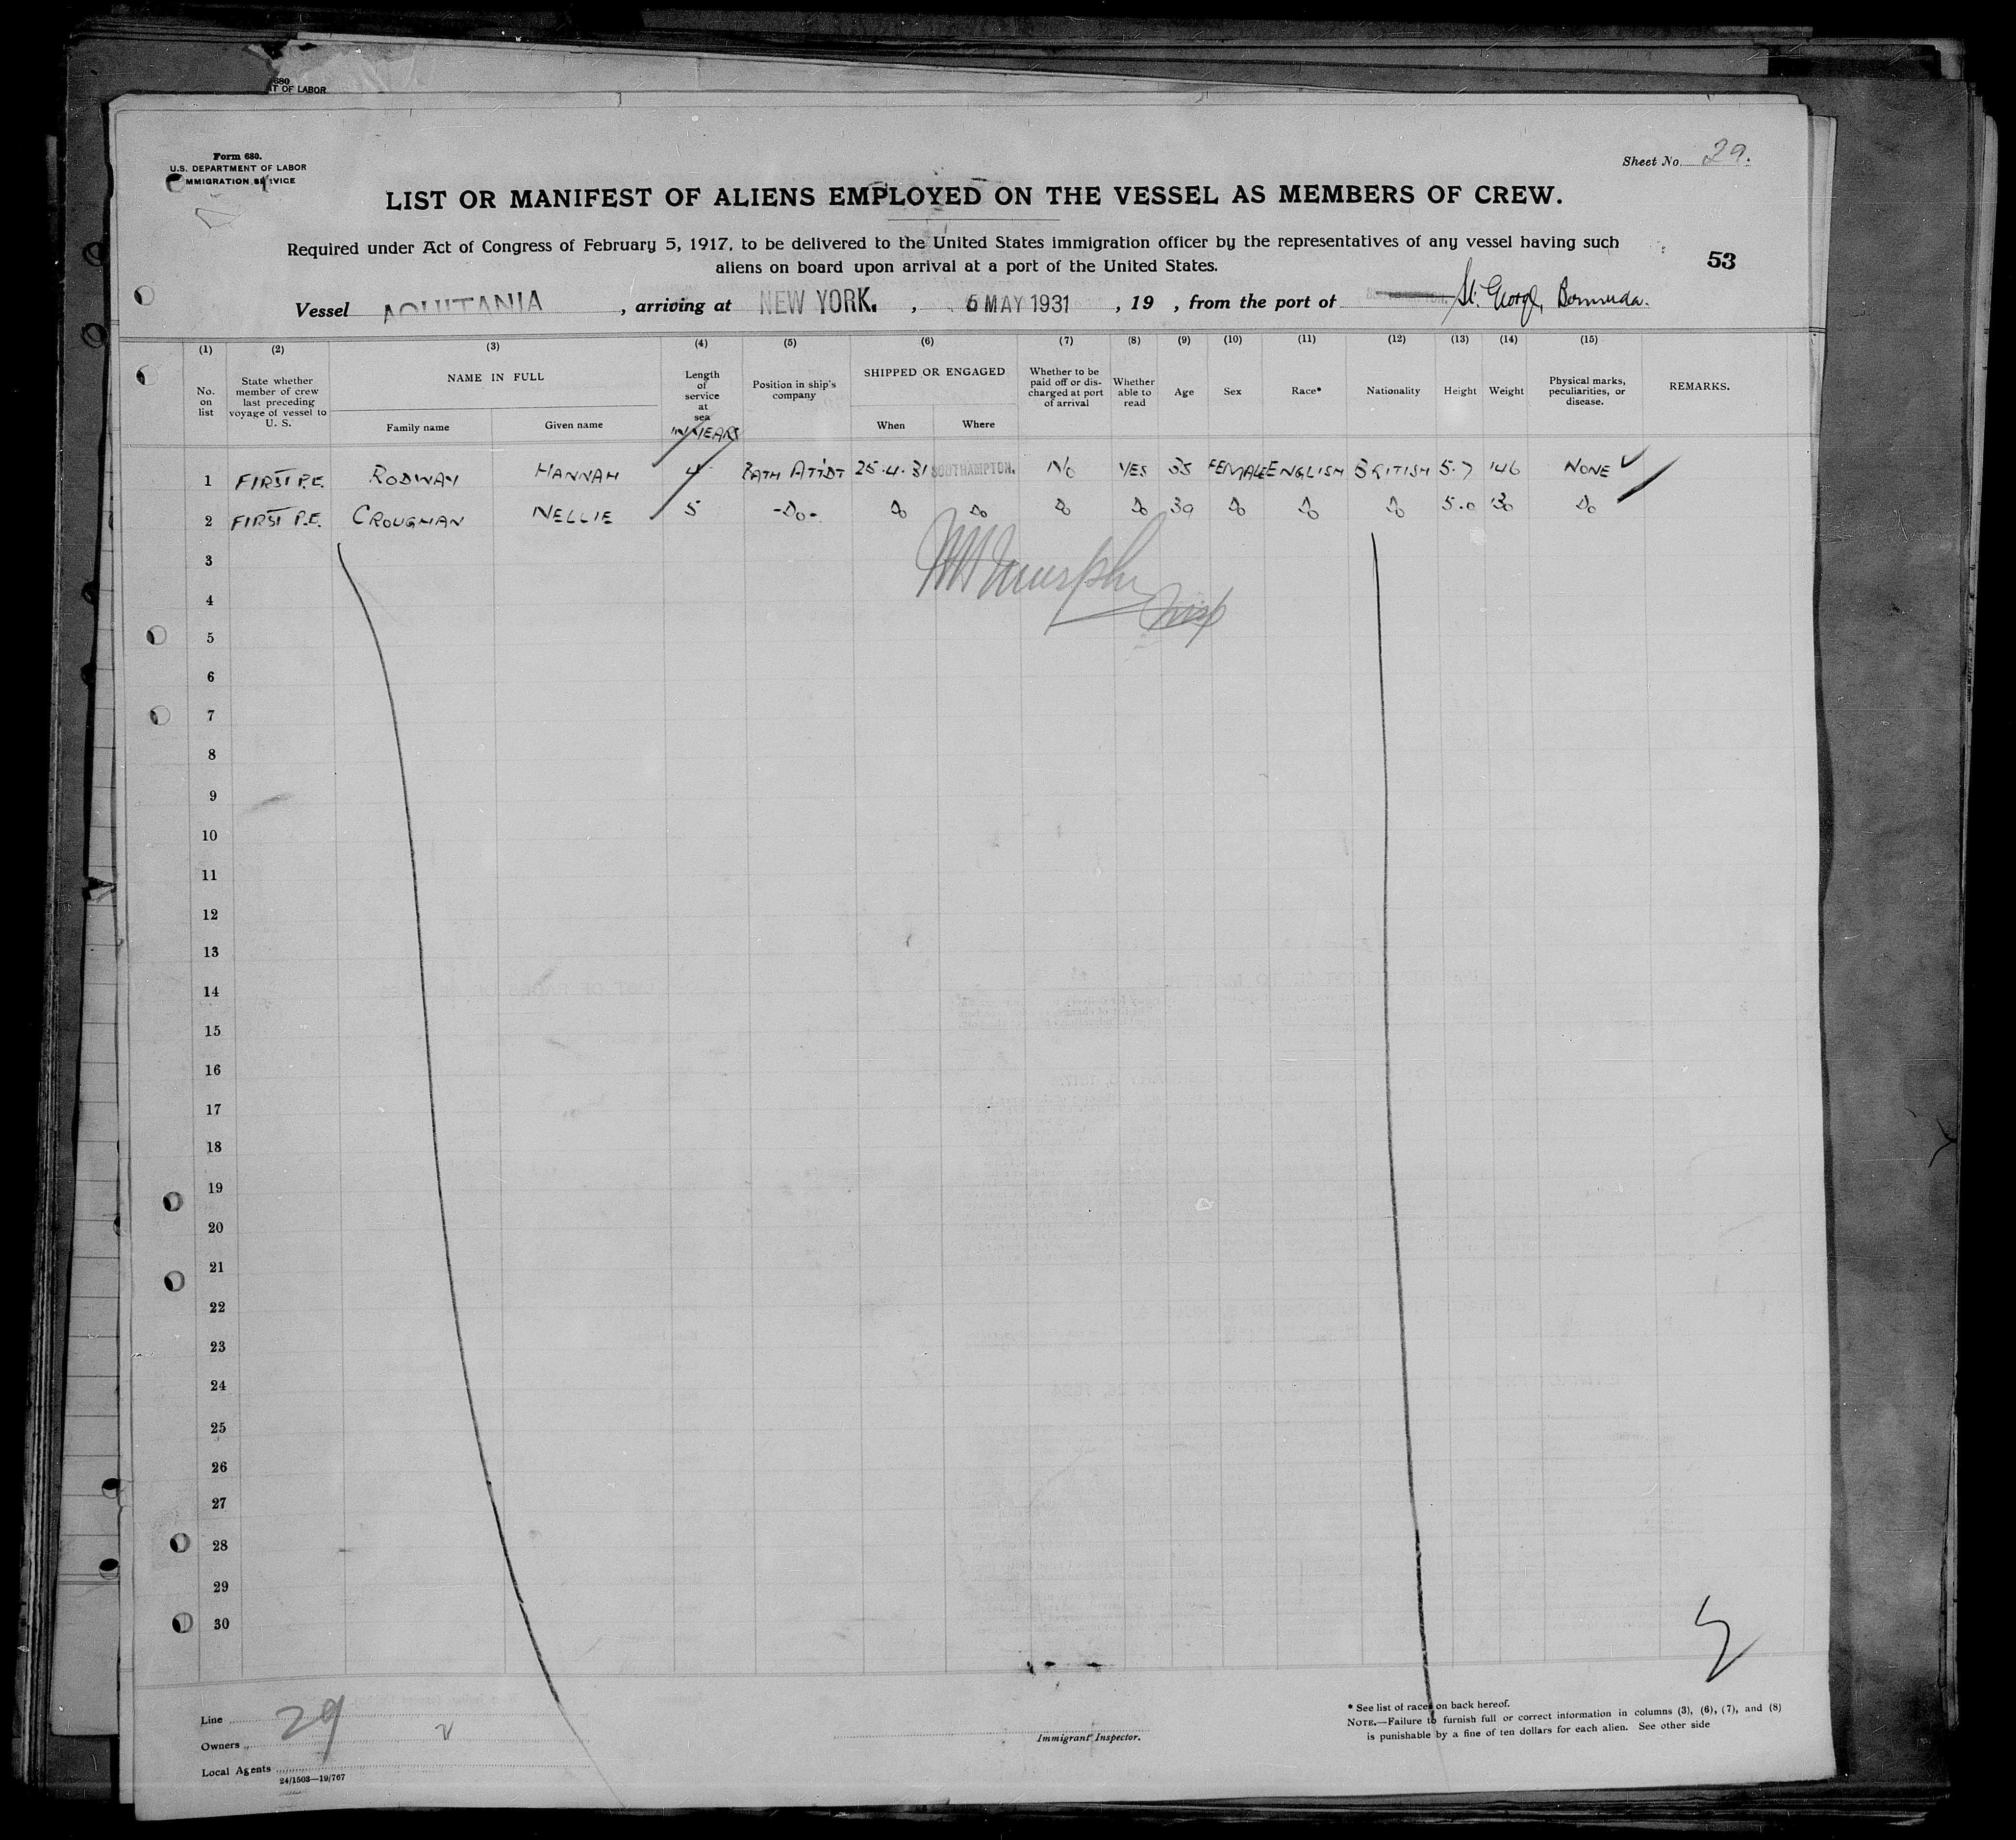 680
T OF LABOR
Form 680.
U.S. DEPARTMENT OF LABOR
IMMIGRATION SERVICE
Sheet No. 29.
LIST OR MANIFEST OF ALIENS EMPLOYED ON THE VESSEL AS MEMBERS OF CREW.
Required under Act of Congress of February 5, 1917, to be delivered to the United States immigration officer by the representatives of any vessel having such
aliens on board upon arrival at a port of the United States.
53
Vessel AQUITANIA , arriving at NEW YORK. , 6 MAY 1931 , 19 , from the port of St. George, Bermuda.
(1) (2) (3) (4) (5) (6) (7) (8) (9) (10) (11) (12) (13) (14) (15)
No. on list State whether member of crew last preceding voyage of vessel to U. S. NAME IN FULL Family name Given name Length of service at sea IN YEARS Position in ship's company SHIPPED OR ENGAGED When Where Whether to be paid off or discharged at port of arrival Whether able to read Age Sex Race* Nationality Height Weight Physical marks, peculiarities, or disease. REMARKS.
1 FIRST P.E. RODWAY HANNAH 4 BATH ATT'DT 25.4.31 SOUTHAMPTON. NO YES 35 FEMALE ENGLISH BRITISH 5.7 146 NONE
2 FIRST P.E. CROUGHAN NELLIE 5 -Do- Do Do Do Do 39 Do Do Do 5.0 Do
3
W H Murphy
4
Insp
5
6
7
8
9
10
11
12
13
14
15
16
17
18
19
20
21
22
23
24
25
26
27
28
29
30
Line 29
Owners
Local Agents
24/1503—19/767
Immigrant Inspector.
* See list of races on back hereof.
NOTE.—Failure to furnish full or correct information in columns (3), (6), (7), and (8)
is punishable by a fine of ten dollars for each alien. See other side